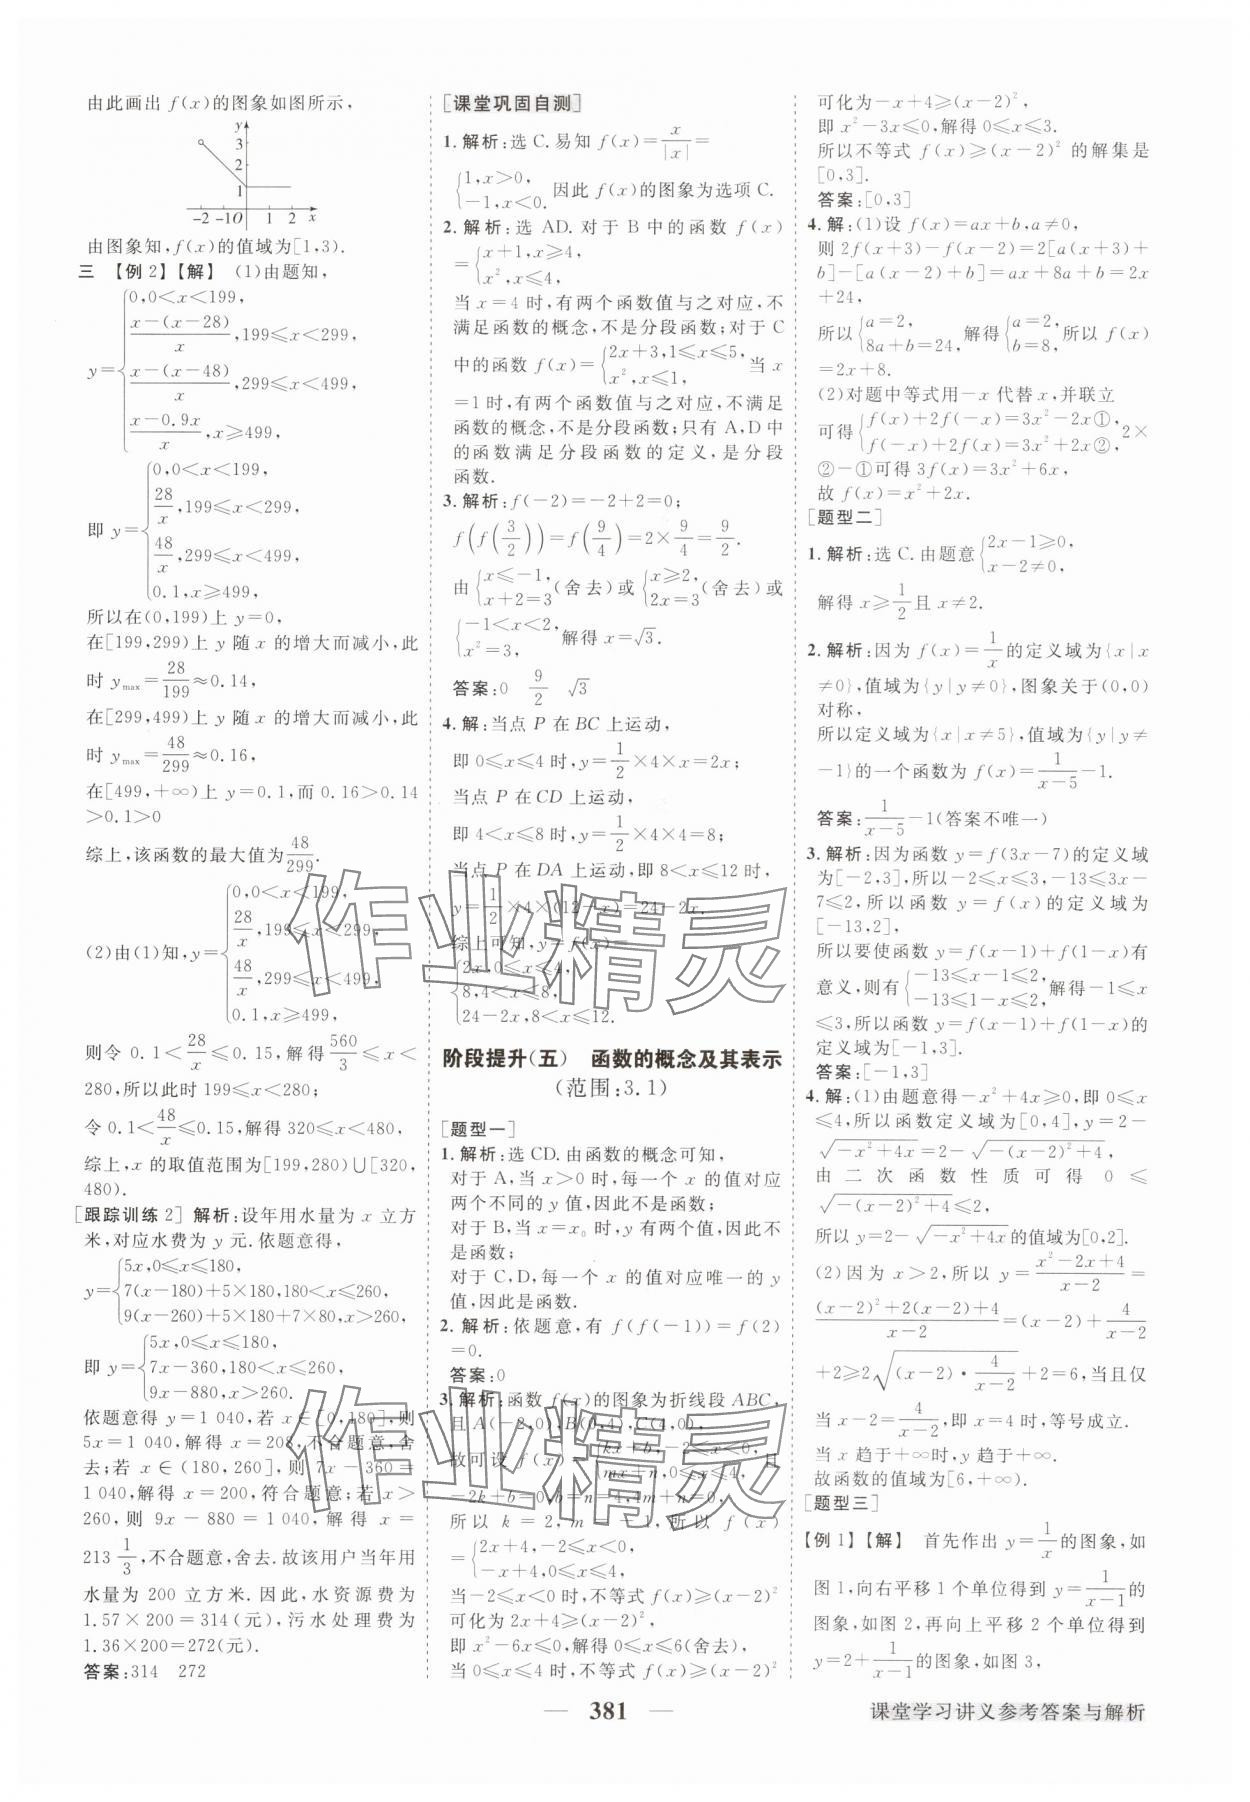 由此画出 f(x)的图象如图所示,
y
3
2
1
-2 -1 O 1 2 x
由图象知,f(x)的值域为[1,3).
三 【例2】【解】 (1)由题知,
y={0,0<x<199,
(x-(x-28))/x,199≤x<299,
(x-(x-48))/x,299≤x<499,
(x-0.9x)/x,x≥499,
即 y={0,0<x<199,
28/x,199≤x<299,
48/x,299≤x<499,
0.1,x≥499,
所以在(0,199)上 y=0,
在[199,299)上 y 随 x 的增大而减小,此
时 y_max=28/199≈0.14,
在[299,499)上 y 随 x 的增大而减小,此
时 y_max=48/299≈0.16,
在[499,+∞)上 y=0.1,而 0.16>0.14
>0.1>0
综上,该函数的最大值为48/299.
(2)由(1)知,y={0,0<x<199,
28/x,199≤x<299,
48/x,299≤x<499,
0.1,x≥499,
则令 0.1<28/x≤0.15,解得560/3≤x<
280,所以此时 199≤x<280;
令 0.1<48/x≤0.15,解得 320≤x<480,
综上,x 的取值范围为[199,280)∪[320,
480).
[跟踪训练2] 解析:设年用水量为 x 立方
米,对应水费为 y 元.依题意得,
y={5x,0≤x≤180,
7(x-180)+5×180,180<x≤260,
9(x-260)+5×180+7×80,x>260,
即 y={5x,0≤x≤180,
7x-360,180<x≤260,
9x-880,x>260.
依题意得 y=1 040,若 x∈[0,180],则
5x=1 040,解得 x=208,不合题意,舍
去;若 x∈(180,260],则 7x-360=
1 040,解得 x=200,符合题意;若 x>
260,则 9x-880=1 040,解得 x=
213 1/3,不合题意,舍去.故该用户当年用
水量为 200 立方米.因此,水资源费为
1.57×200=314(元),污水处理费为
1.36×200=272(元).
答案:314 272
[课堂巩固自测]
1.解析:选 C.易知 f(x)=x/|x|=
{1,x>0,
-1,x<0. 因此 f(x)的图象为选项 C.
2.解析:选 AD.对于 B 中的函数 f(x)
={x+1,x≥4,
x²,x≤4,
当 x=4 时,有两个函数值与之对应,不
满足函数的概念,不是分段函数;对于 C
中的函数 f(x)={2x+3,1≤x≤5,
x²,x≤1, 当 x
=1 时,有两个函数值与之对应,不满足
函数的概念,不是分段函数;只有 A,D 中
的函数满足分段函数的定义,是分段
函数.
3.解析:f(-2)=-2+2=0;
f(f(3/2))=f(9/4)=2×9/4=9/2.
由{x≤-1,
x+2=3(舍去)或{x≥2,
2x=3(舍去)或
{-1<x<2,
x²=3, 解得 x=√3.
答案:0 9/2 √3
4.解:当点 P 在 BC 上运动,
即 0≤x≤4 时,y=1/2×4×x=2x;
当点 P 在 CD 上运动,
即 4<x≤8 时,y=1/2×4×4=8;
当点 P 在 DA 上运动,即 8<x≤12 时,
y=1/2×4×(12-x)=24-2x,
综上可知,y=f(x)=
{2x,0≤x≤4,
8,4<x≤8,
24-2x,8<x≤12.
阶段提升(五) 函数的概念及其表示
(范围:3.1)
[题型一]
1.解析:选 CD.由函数的概念可知,
对于 A,当 x>0 时,每一个 x 的值对应
两个不同的 y 值,因此不是函数;
对于 B,当 x=x₀ 时,y 有两个值,因此不
是函数;
对于 C,D,每一个 x 的值对应唯一的 y
值,因此是函数.
2.解析:依题意,有 f(f(-1))=f(2)
=0.
答案:0
3.解析:函数 f(x)的图象为折线段 ABC,
且 A(-2,0),B(0,4),C(4,0),
故可设 f(x)={kx+b,-2≤x<0,
mx+n,0≤x≤4, 且
-2k+b=0,b=n=4,4m+n=0,
所以 k=2,m=-1,所以 f(x)
={2x+4,-2≤x<0,
-x+4,0≤x≤4.
当-2≤x<0 时,不等式 f(x)≥(x-2)²
可化为 2x+4≥(x-2)²,
即 x²-6x≤0,解得 0≤x≤6(舍去);
当 0≤x≤4 时,不等式 f(x)≥(x-2)²
可化为-x+4≥(x-2)²,
即 x²-3x≤0,解得 0≤x≤3.
所以不等式 f(x)≥(x-2)² 的解集是
[0,3].
答案:[0,3]
4.解:(1)设 f(x)=ax+b,a≠0,
则 2f(x+3)-f(x-2)=2[a(x+3)+
b]-[a(x-2)+b]=ax+8a+b=2x
+24,
所以{a=2,
8a+b=24,解得{a=2,
b=8,所以 f(x)
=2x+8.
(2)对题中等式用-x 代替 x,并联立
可得{f(x)+2f(-x)=3x²-2x①,
f(-x)+2f(x)=3x²+2x②,2×
②-①可得 3f(x)=3x²+6x,
故 f(x)=x²+2x.
[题型二]
1.解析:选 C.由题意{2x-1≥0,
x-2≠0,
解得 x≥1/2且 x≠2.
2.解析:因为 f(x)=1/x的定义域为{x|x
≠0},值域为{y|y≠0},图象关于(0,0)
对称,
所以定义域为{x|x≠5},值域为{y|y≠
-1}的一个函数为 f(x)=1/(x-5)-1.
答案:1/(x-5)-1(答案不唯一)
3.解析:因为函数 y=f(3x-7)的定义域
为[-2,3],所以-2≤x≤3,-13≤3x-
7≤2,所以函数 y=f(x)的定义域为
[-13,2],
所以要使函数 y=f(x-1)+f(1-x)有
意义,则有{-13≤x-1≤2,
-13≤1-x≤2,解得-1≤x
≤3,所以函数 y=f(x-1)+f(1-x)的
定义域为[-1,3].
答案:[-1,3]
4.解:(1)由题意得-x²+4x≥0,即 0≤x
≤4,所以函数定义域为[0,4],y=2-
√(-x²+4x)=2-√(-(x-2)²+4),
由二次函数性质可得 0≤
√(-(x-2)²+4)≤2,
所以 y=2-√(-x²+4x)的值域为[0,2].
(2)因为 x>2,所以 y=(x²-2x+4)/(x-2)=
((x-2)²+2(x-2)+4)/(x-2)=(x-2)+4/(x-2)
+2≥2√((x-2)·4/(x-2))+2=6,当且仅
当 x-2=4/(x-2),即 x=4 时,等号成立.
当 x 趋于+∞时,y 趋于+∞.
故函数的值域为[6,+∞).
[题型三]
【例1】【解】 首先作出 y=1/x的图象,如
图 1,向右平移 1 个单位得到 y=1/(x-1)的
图象,如图 2,再向上平移 2 个单位得到
y=2+1/(x-1)的图象,如图 3,
作业精灵
作业精灵
— 381 —
课堂学习讲义参考答案与解析